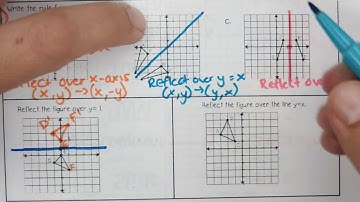 Write the rule
C.
Reflect over x-axis
(x,y)→(x,-y)
Reflect over y=x
(x,y)→(y,x)
Reflect over
Reflect the figure over y= 1.
Reflect the figure over the line y=x.
D' F'
E'
F